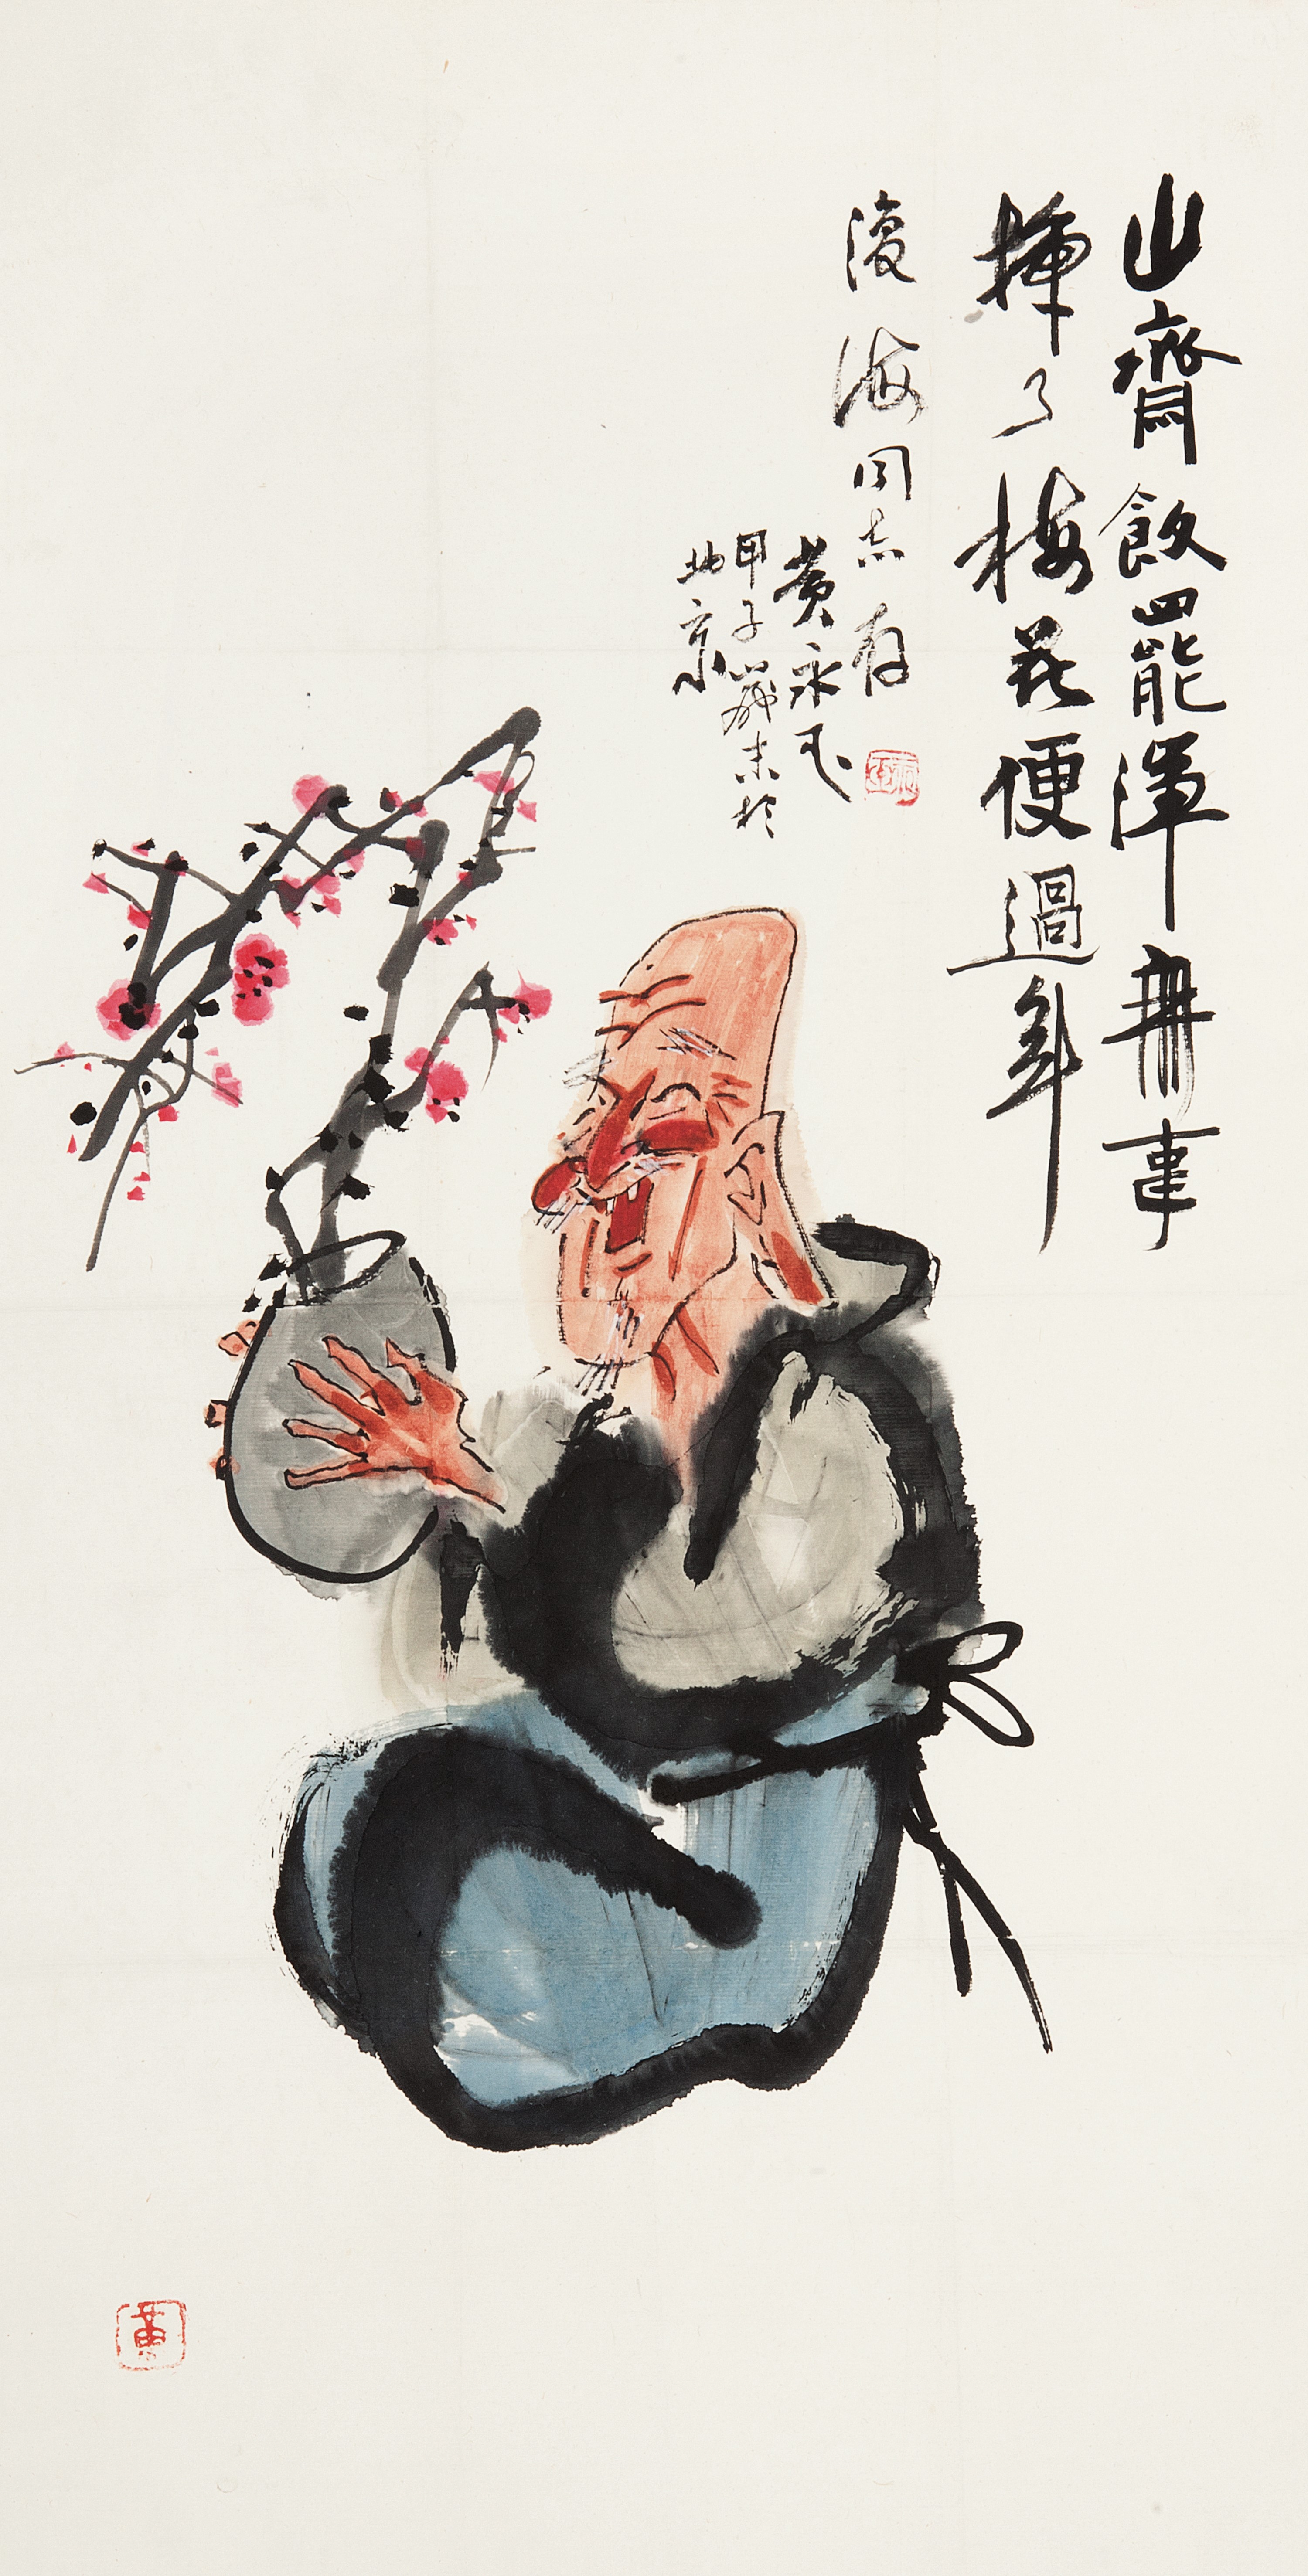 山齋飲罷渾無事
插了梅花便過年
復海同志存
黄永玉
甲子歲末於
北京
黄